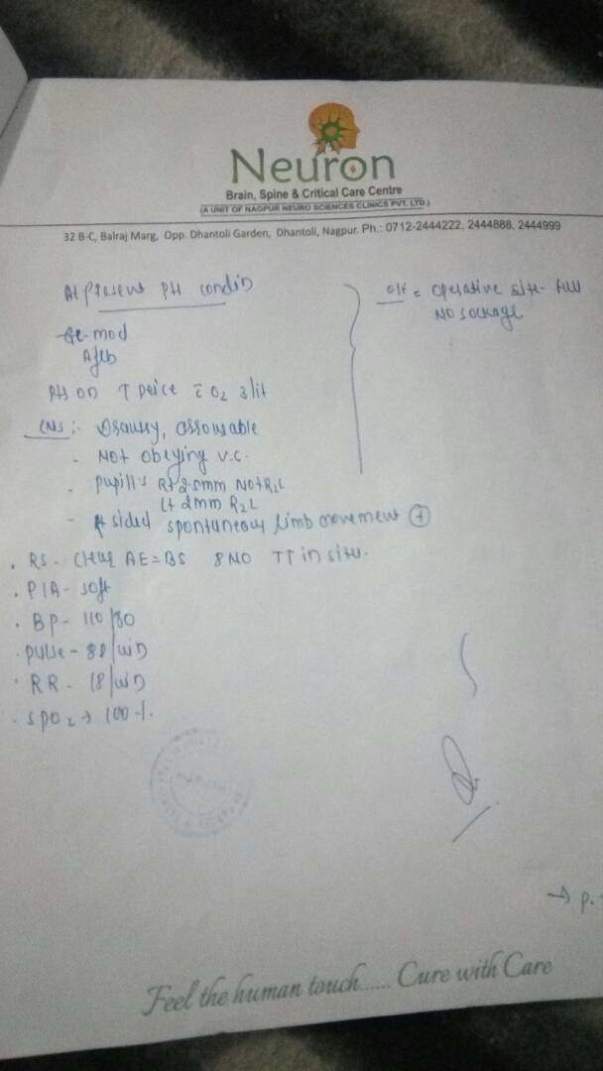 Neuron
Brain, Spine & Critical Care Centre
(A UNIT OF NAGPUR NEURO SCIENCES CLINICS PVT. LTD.)
32 B-C, Balraj Marg, Opp. Dhantoli Garden, Dhantoli, Nagpur. Ph.: 0712-2444222, 2444888, 2444999
At present Pt condin
Gc-mod
Afeb
Pts on T peice c̄ O2 3lit
CNS :- Drausy, arrousable
- Not obeying v.c.
- pupills Rt 2.5mm Not R2L
Lt 2mm R2L
- sided spontaneous limb movement +
. RS - Clear AE=BS 8 NO TT in situ.
. P/A - soft
. BP - 110/80
. pulse - 88/min
. RR - 18/min
. SPO2 → 100%.
O/E = Operative site - full
NO soakage
→ p.
Feel the human touch...... Cure with Care